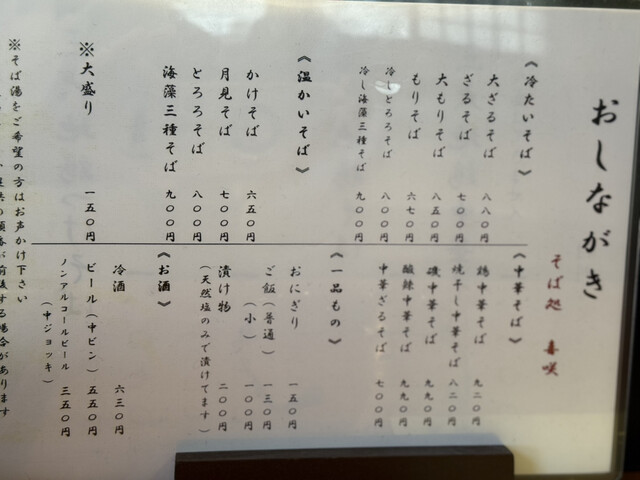 おしながき
そば処 喜咲
《冷たいそば》
大ざるそば 八八〇円
ざるそば 七〇〇円
大もりそば 八五〇円
もりそば 六七〇円
冷しとろろそば 八〇〇円
冷し海藻三種そば 九〇〇円
《温かいそば》
かけそば 六五〇円
月見そば 七〇〇円
とろろそば 八〇〇円
海藻三種そば 九〇〇円
※大盛り 一五〇円
《中華そば》
鶏中華そば 九二〇円
焼干し中華そば 八二〇円
磯中華そば 九九〇円
酸辣中華そば 九九〇円
中華ざるそば 七〇〇円
《一品もの》
おにぎり 一五〇円
ご飯(普通) 一三〇円
(小) 一〇〇円
漬け物 二〇〇円
(天然塩のみで漬けてます)
《お酒》
冷酒 六三〇円
ビール(中ビン) 五五〇円
ノンアルコールビール 三五〇円
(中ジョッキ)
※そば湯をご希望の方はお声かけ下さい
が前後する場合があります